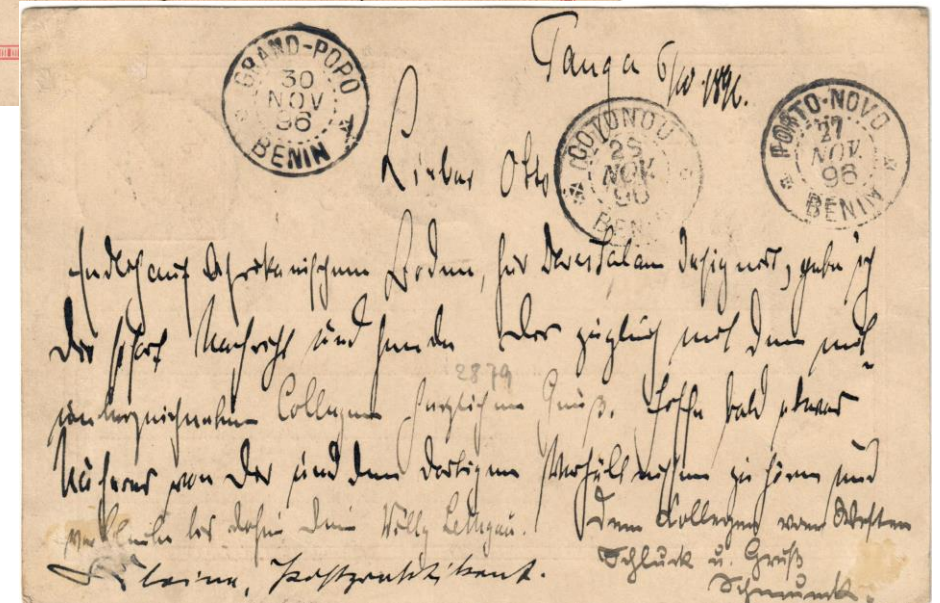 GRAND-POPO
30
NOV
96
BENIN
Tanga
COTONOU
NOV
BENIN
PORTO-NOVO
27
NOV
96
BENIN
Lieber Otto
Endlich auf Afrikanischem Boden, für Daressalam designirt, gebe ich
Dir sofort Nachricht und sende Dir zugleich mit dem mit-
2879
unterzeichneten Collegen herzlichen Gruß. Hoffe bald etwas
Näheres von Dir und den dortigen Verhältnissen zu hören und
verbleibe bis dahin Dein Willy
Dem Kollegen vom Westen
Schluck u. Gruß
Kleine, Postpraktikant.